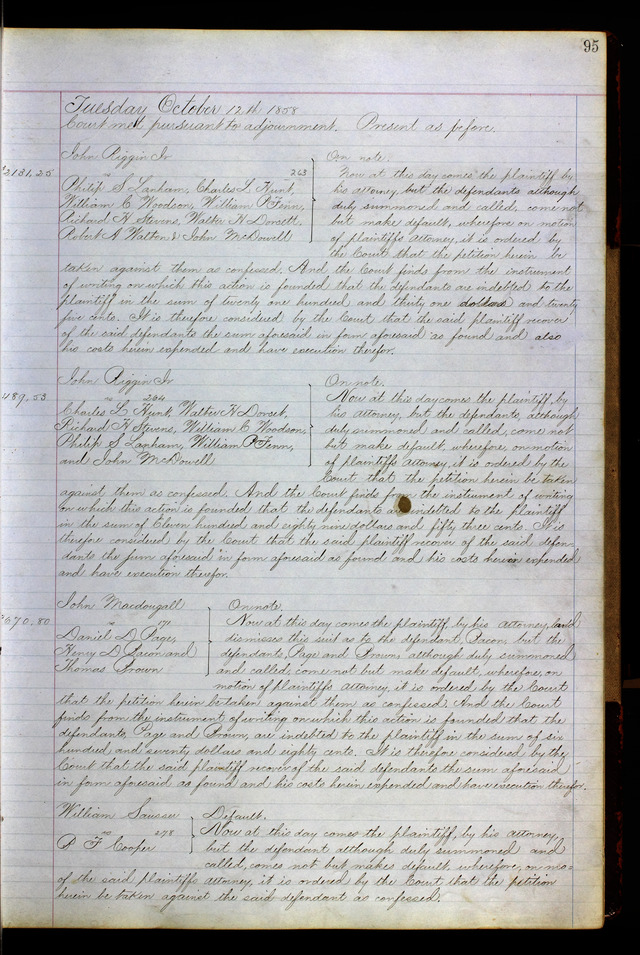 95
Tuesday October 12th 1858
Court met pursuant to adjournment. Present as before.
John Riggin Jr
$2131.25
vs 263
Philip S Lanham, Charles L Hunt,
William C Woodson, William P Fenn,
Richard H Stevens, Walker H Dorsett,
Robert A Walton & John McDowell
On note.
Now at this day comes the plaintiff by
his attorney, but the defendants although
duly summoned and called, come not
but make default, wherefore on motion
of plaintiffs attorney, it is ordered by
the Court that the petition herein be
taken against them as confessed. And the Court finds from the instrument
of writing on which this action is founded that the defendants are indebted to the
plaintiff in the sum of twenty one hundred and thirty one dollars and twenty
five cents. It is therefore considered by the Court that the said plaintiff recover
of the said defendants the sum aforesaid in form aforesaid as found and also
his costs herein expended and have execution therefor.
John Riggin Jr
489.53
vs 264
Charles L Hunt, Walker H Dorsett,
Richard H Stevens, William C Woodson,
Philip S Lanham, William P Fenn,
and John McDowell
On note.
Now at this day comes the plaintiff, by
his attorney, but the defendants, although
duly summoned and called, come not
but make default, wherefore, on motion
of plaintiffs attorney, it is ordered by the
Court that the petition herein be taken
against them as confessed. And the Court finds from the instrument of writing
on which this action is founded that the defendants are indebted to the plaintiff
in the sum of Eleven hundred and eighty nine dollars and fifty three cents. It is
therefore considered by the Court that the said plaintiff recover of the said defen-
dants the sum aforesaid in form aforesaid as found and his costs herein expended
and have execution therefor.
John Macdougall
670.80
vs 171
Daniel D Page,
Henry D Bacon and
Thomas Brown
On note.
Now at this day comes the plaintiff by his attorney, and
dismisses this suit as to the defendant, Bacon, but the
defendants, Page and Brown, although duly summoned
and called, come not but make default, wherefore, on
motion of plaintiffs attorney, it is ordered by the Court
that the petition herein be taken against them as confessed. And the Court
finds from the instrument of writing on which this action is founded that the
defendants, Page and Brown, are indebted to the plaintiff in the sum of six
hundred and seventy dollars and eighty cents. It is therefore considered by the
Court that the said plaintiff recover of the said defendants the sum aforesaid
in form aforesaid as found and his costs herein expended and have execution therefor.
William Sausser
vs 278
P F Cooper
Default.
Now at this day comes the plaintiff, by his attorney,
but the defendant although duly summoned and
called, comes not but makes default, wherefore, on mo-
of the said plaintiffs attorney, it is ordered by the Court that the petition
herein be taken against the said defendant as confessed.